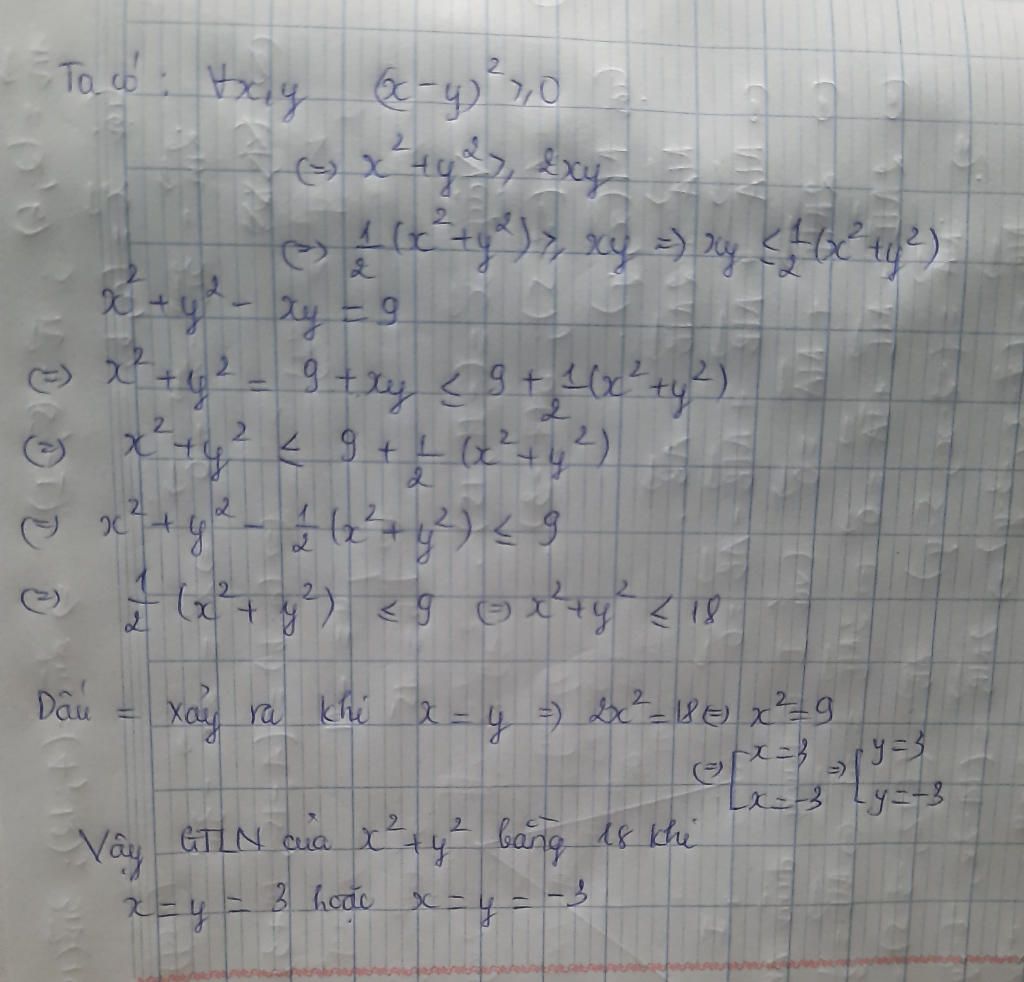 Ta có : ∀x,y (x-y)² ≥ 0
(=) x² + y² ≥ 2xy
(=) 1/2 (x² + y²) ≥ xy => xy ≤ 1/2 (x² + y²)
x² + y² - xy = 9
(=) x² + y² = 9 + xy ≤ 9 + 1/2 (x² + y²)
(=) x² + y² ≤ 9 + 1/2 (x² + y²)
(=) x² + y² - 1/2 (x² + y²) ≤ 9
(=) 1/2 (x² + y²) ≤ 9 (=) x² + y² ≤ 18
Dấu = xảy ra khi x = y => 2x² = 18 (=) x² = 9
(=) [x = 3 => [y = 3
[x = -3 [y = -3
Vậy GTLN của x² + y² bằng 18 khi
x = y = 3 hoặc x = y = -3